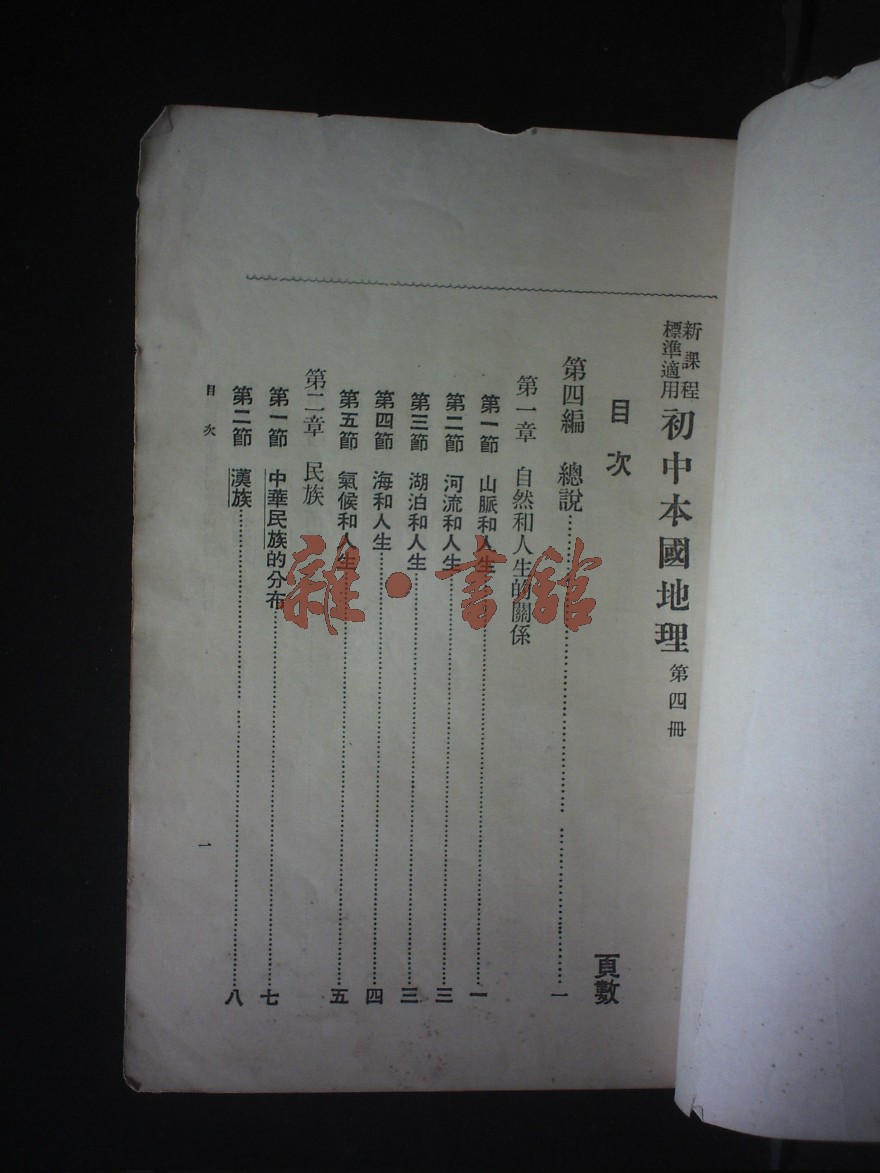 新課程
標準適用
初中本國地理 第四冊
目次
頁數
第四編 總說…………一
第一章 自然和人生的關係
第一節 山脈和人生…………一
第二節 河流和人生…………三
第三節 湖泊和人生…………三
第四節 海和人生…………四
第五節 氣候和人生…………五
第二章 民族
第一節 中華民族的分布…………七
第二節 漢族…………八
目次
一
雜·書館